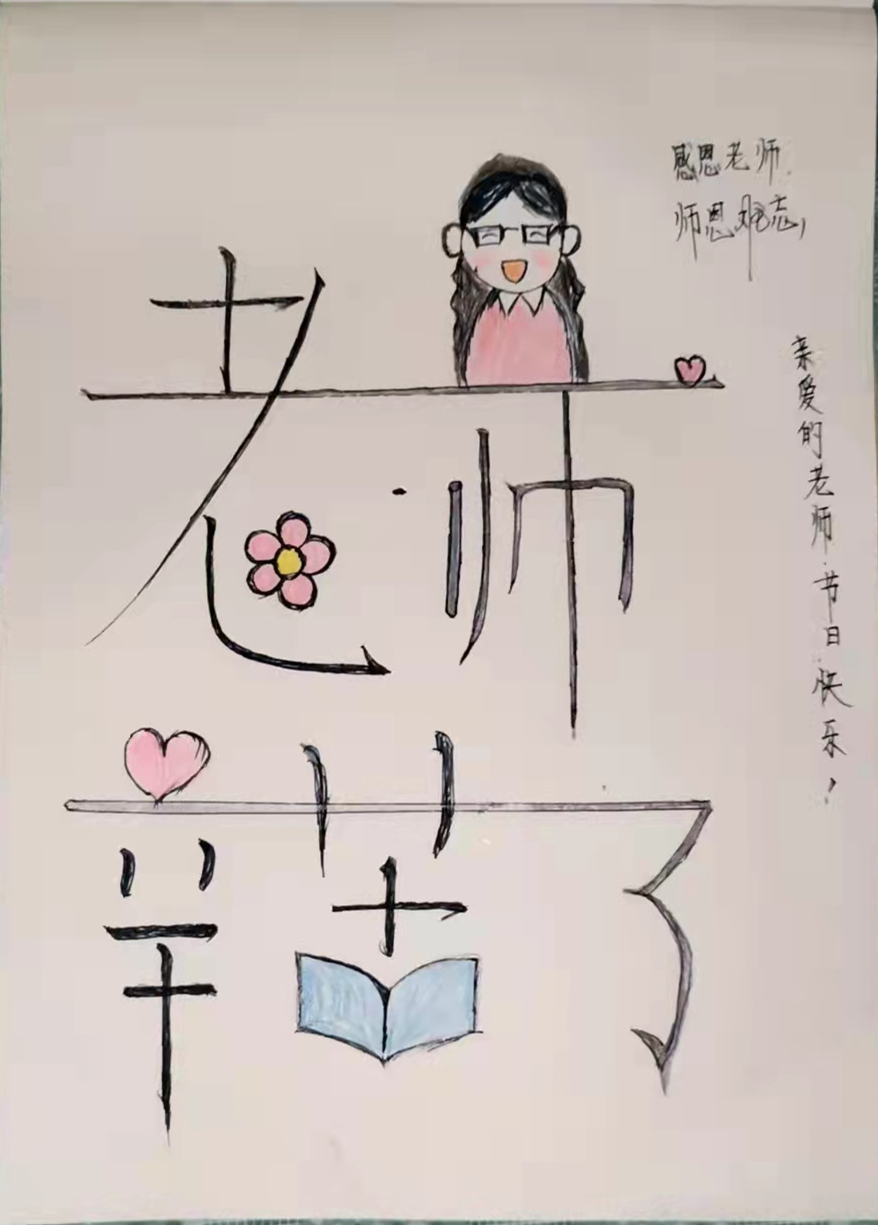 感恩老师,
师恩难忘,
亲爱的老师节日快乐!
老师
辛苦了